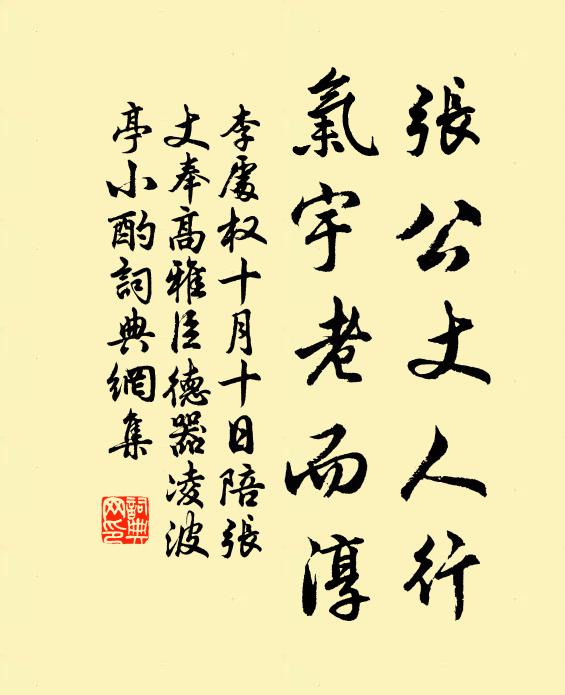 張公丈人行
氣宇老而淳
李處权十月十日陪張
丈奉高雅臣德器凌波
亭小酌詞典網集
詞典
网印